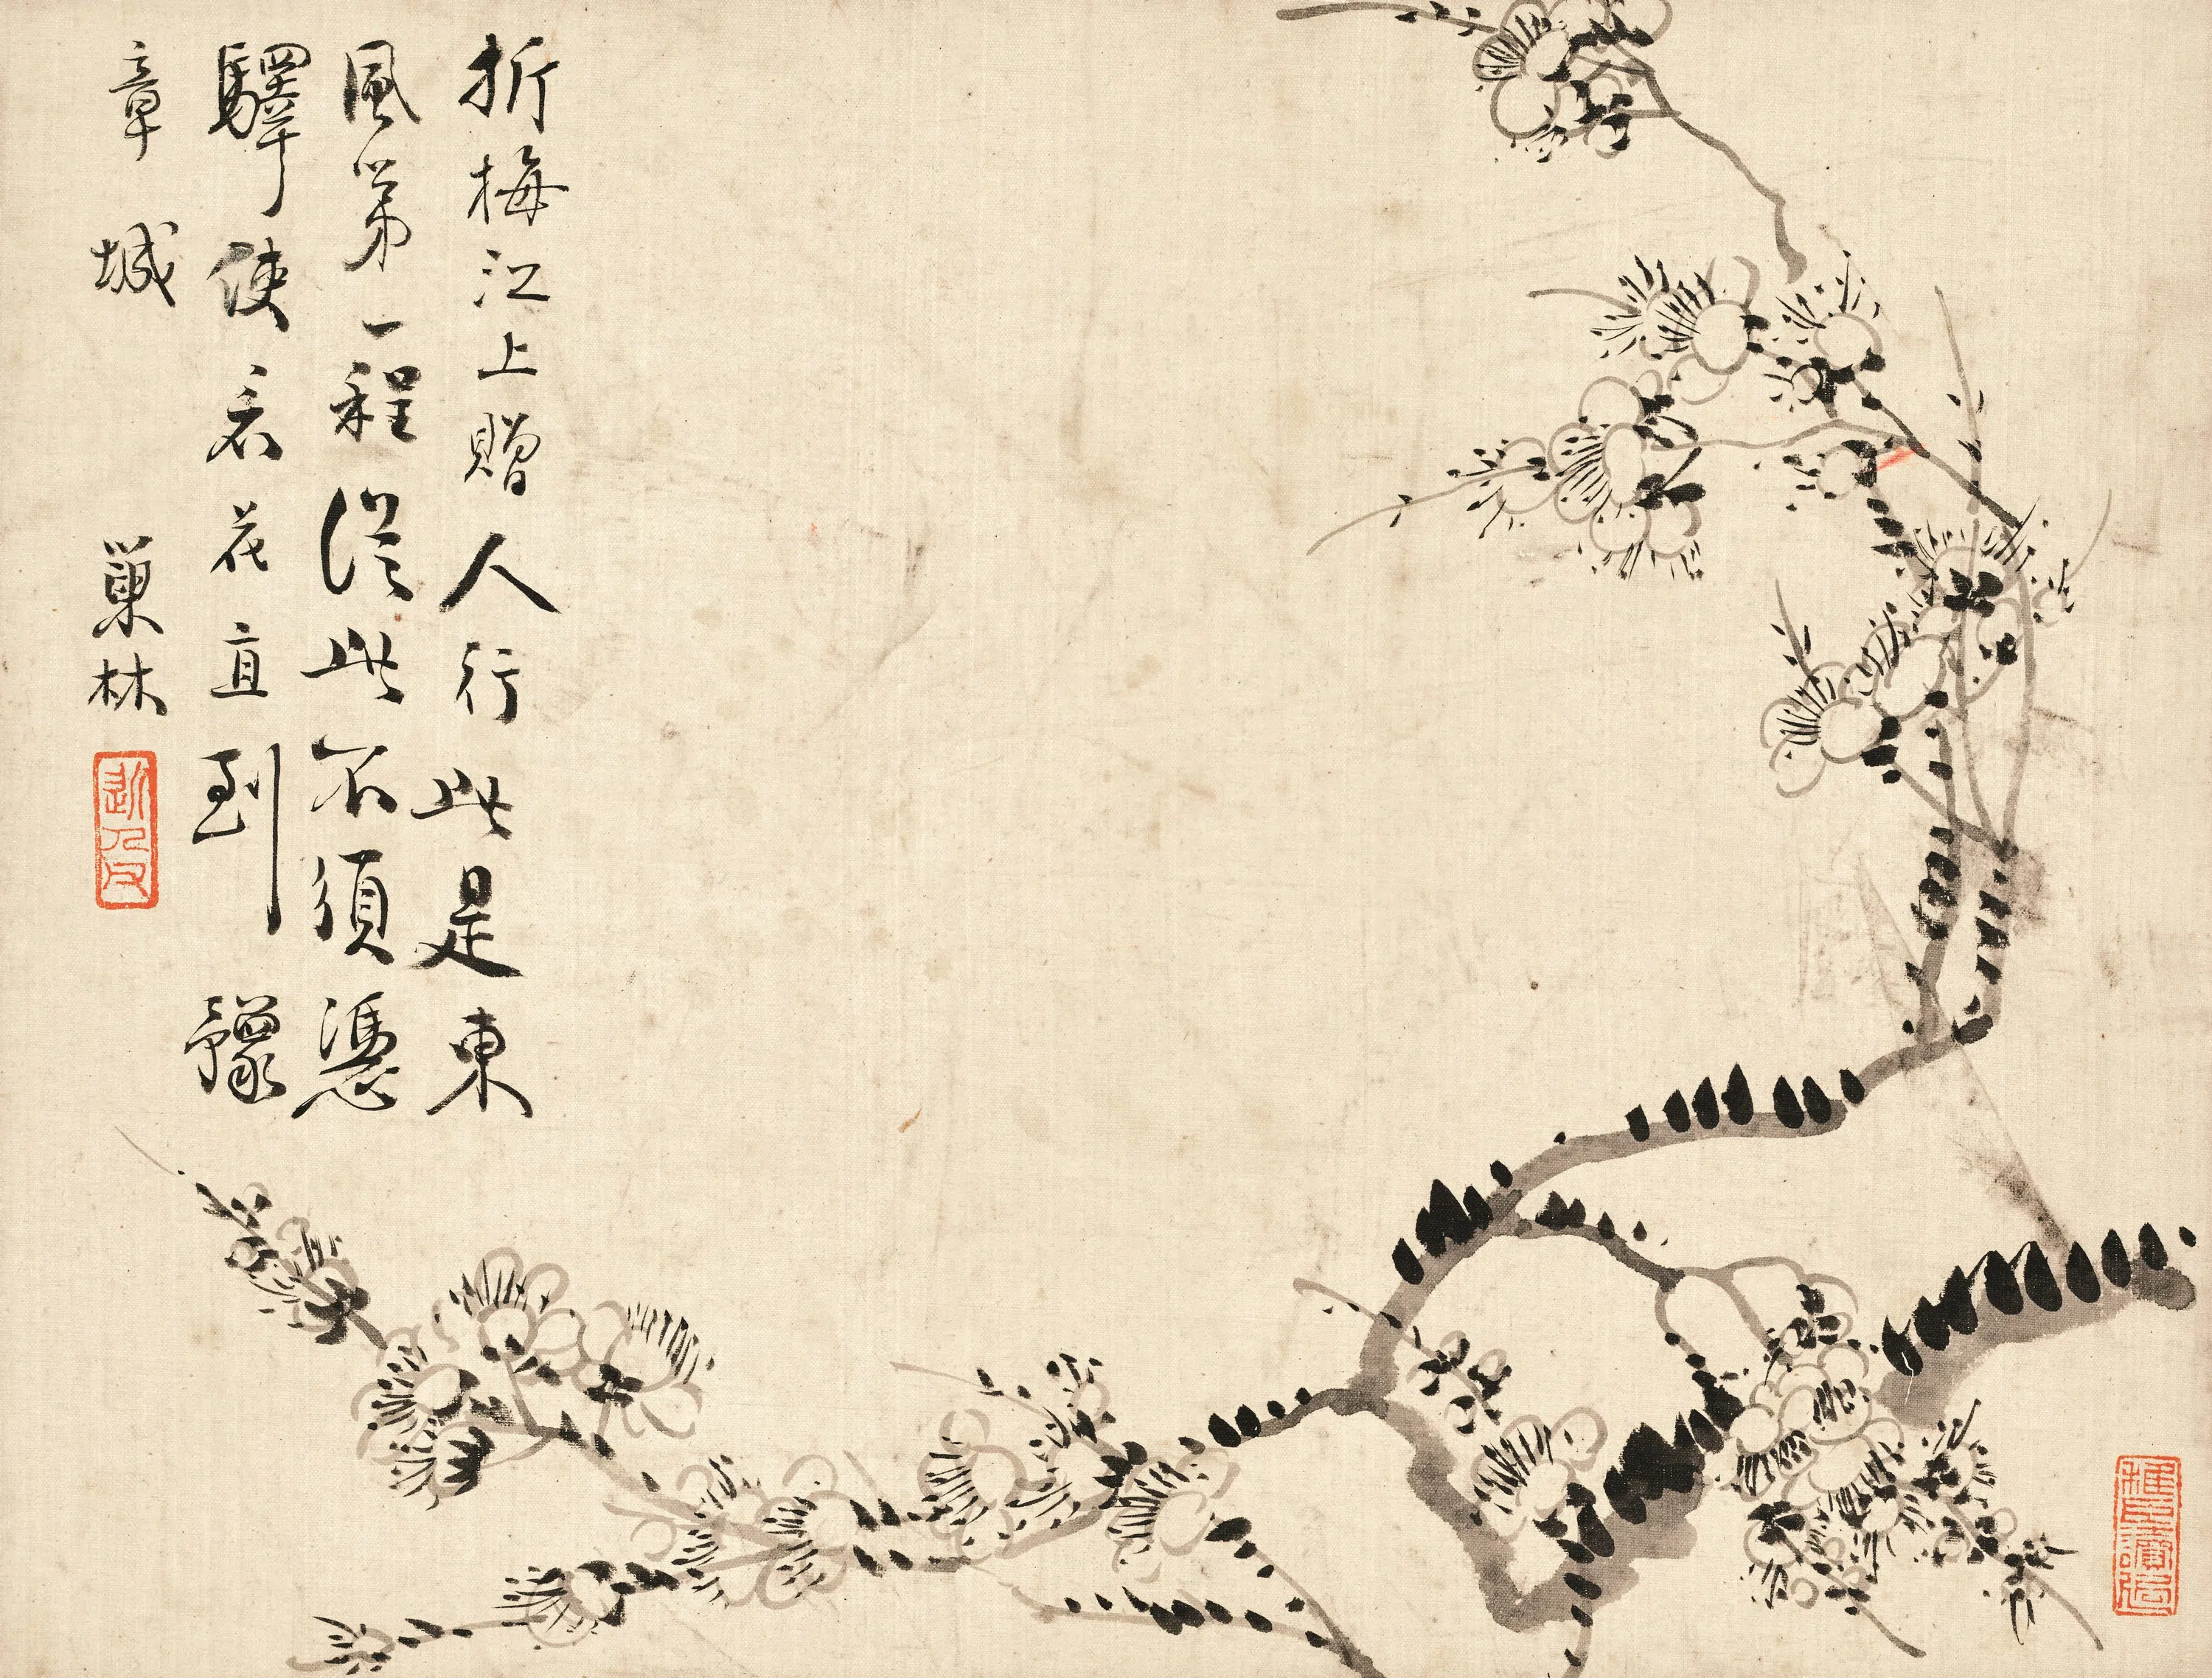 折梅江上贈人行此是東
風第一程從此不須憑
驛使看花直到豫
章城 巢林